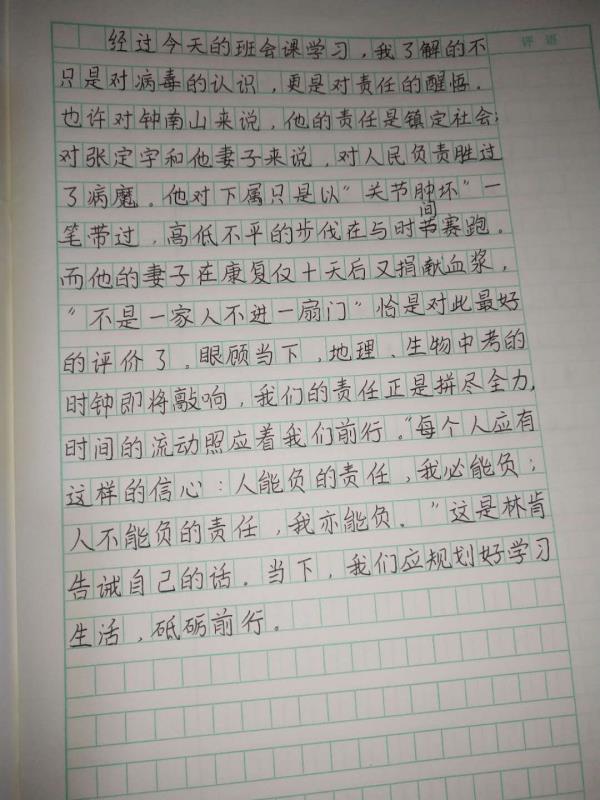 评语
经过今天的班会课学习，我了解的不
只是对病毒的认识，更是对责任的醒悟。
也许对钟南山来说，他的责任是镇定社会；
对张定宇和他妻子来说，对人民负责胜过
了病魔。他对下属只是以“关节肿坏”一
笔带过，高低不平的步伐在与时间赛跑。
而他的妻子在康复仅十天后又捐献血浆，
“不是一家人不进一扇门”恰是对此最好
的评价了。眼顾当下，地理、生物中考的
时钟即将敲响，我们的责任正是拼尽全力，
时间的流动照应着我们前行。“每个人应有
这样的信心：人能负的责任，我必能负；
人不能负的责任，我亦能负。”这是林肯
告诫自己的话。当下，我们应规划好学习
生活，砥砺前行。